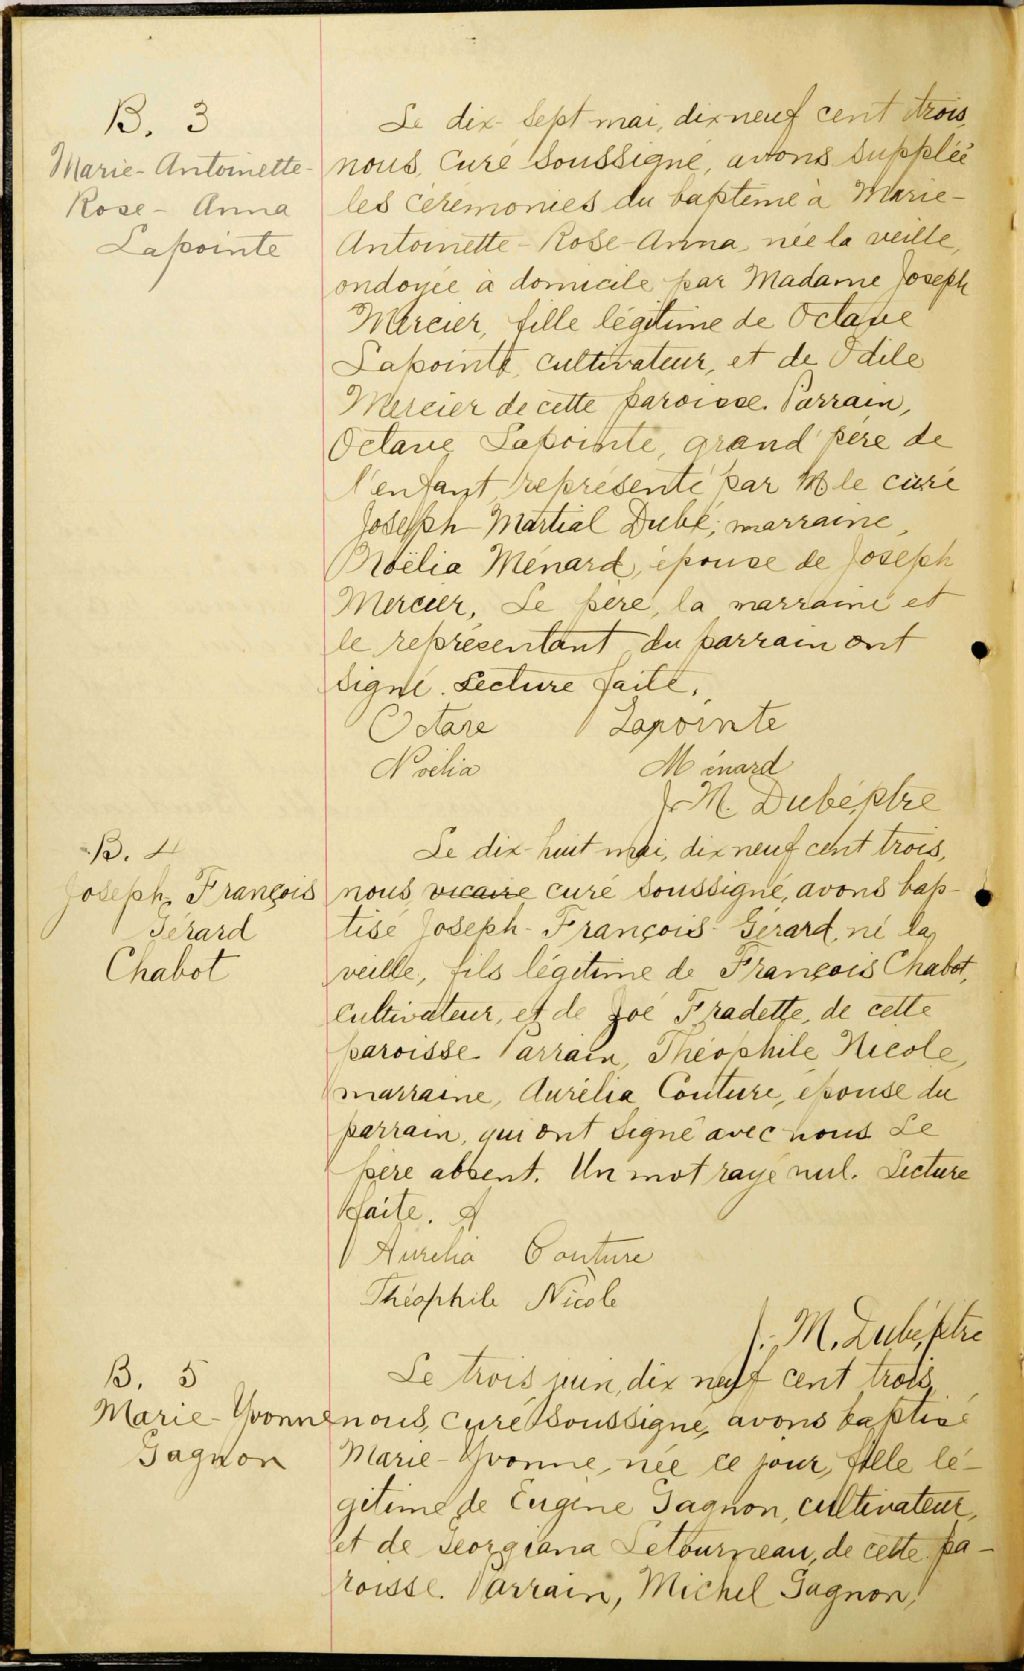 B. 3
Marie-Antoinette-
Rose-Anna
Lapointe
Le dix-sept mai, dix-neuf cent trois,
nous, curé soussigné, avons supplée
les cérémonies du baptême à Marie-
Antoinette-Rose-Anna, née la veille,
ondoyée à domicile par Madame Joseph
Mercier, fille légitime de Octave
Lapointe, cultivateur, et de Odile
Mercier de cette paroisse. Parrain,
Octave Lapointe, grand'père de
l'enfant, représenté par M le curé
Joseph-Martial Dubé; marraine,
Noëlia Ménard, épouse de Joseph
Mercier. Le père, la marraine et
le représentant du parrain ont
signé. Lecture faite.
Octave Lapointe
Noëlia Ménard
J. M. Dubé, ptre
B. 4
Joseph, François
Gérard
Chabot
Le dix-huit mai, dix neuf cent trois,
nous, vicaire curé soussigné, avons bap-
tisé Joseph-François-Gérard, né la
veille, fils légitime de François Chabot,
cultivateur, et de Zoé Fradette, de cette
paroisse. Parrain, Théophile Nicole,
marraine, Aurélia Couture, épouse du
parrain, qui ont signé avec nous. Le
père absent. Un mot rayé nul. Lecture
faite. A
Aurelia Couture
Théophile Nicole
J. M. Dubé, ptre
B. 5
Marie-Yvonne
Gagnon
Le trois juin, dix neuf cent trois,
nous, curé soussigné, avons baptisé
Marie-Yvonne, née ce jour, fille lé-
gitime de Eugène Gagnon, cultivateur,
et de Georgiana Letourneau, de cette pa-
roisse. Parrain, Michel Gagnon,